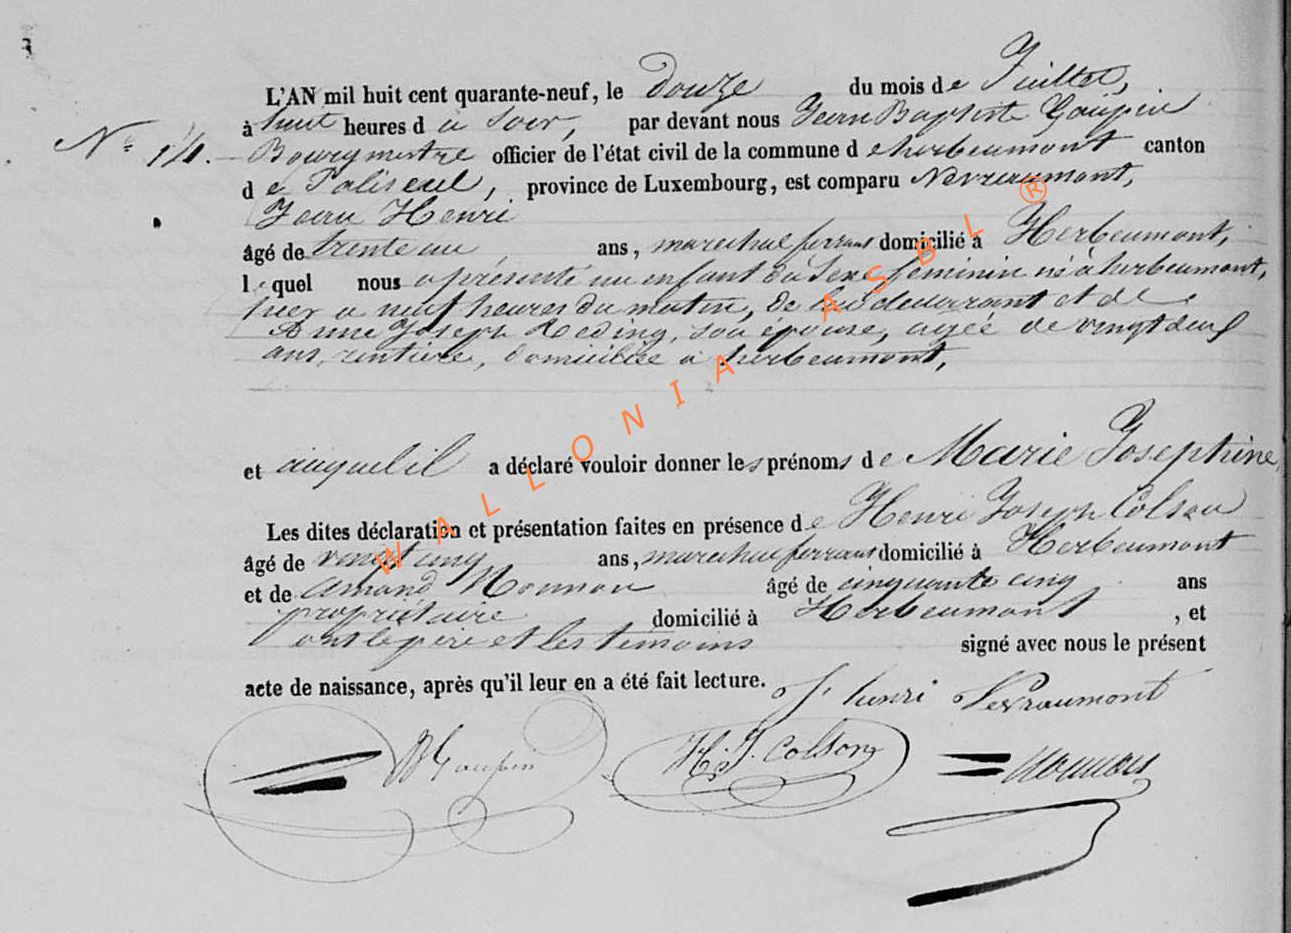 L'AN mil huit cent quarante-neuf, le douze du mois de Juillet,
à huit heures d u soir, par devant nous Jean Baptiste Goupin
N° 14. Bourgmestre officier de l'état civil de la commune d e herbeumont canton
d e Paliseul, province de Luxembourg, est comparu Nevraumont,
Jean Henri
âgé de trente un ans, marechal ferrant domicilié à Herbeumont,
lequel nous a présenté un enfant du sexe féminin né à herbeumont,
hier a neuf heures du matin, de lui déclarant et de
Anne Joseph Reding, son épouse, agée de vingt deux
ans, rentière, domiciliée a herbeumont,
et auquel il a déclaré vouloir donner les prénoms de Marie Josephine,
Les dites déclaration et présentation faites en présence de Henri Joseph Colson
âgé de vingt cinq ans, marechal ferrant domicilié à Herbeumont
et de Amand âgé de cinquante cinq ans
propriétaire domicilié à Herbeumont, et
ont le père et les témoins signé avec nous le présent
acte de naissance, après qu'il leur en a été fait lecture.
J henri Nevraumont
JB Goupin H. J. Colson
WALLONIA ASBL ®